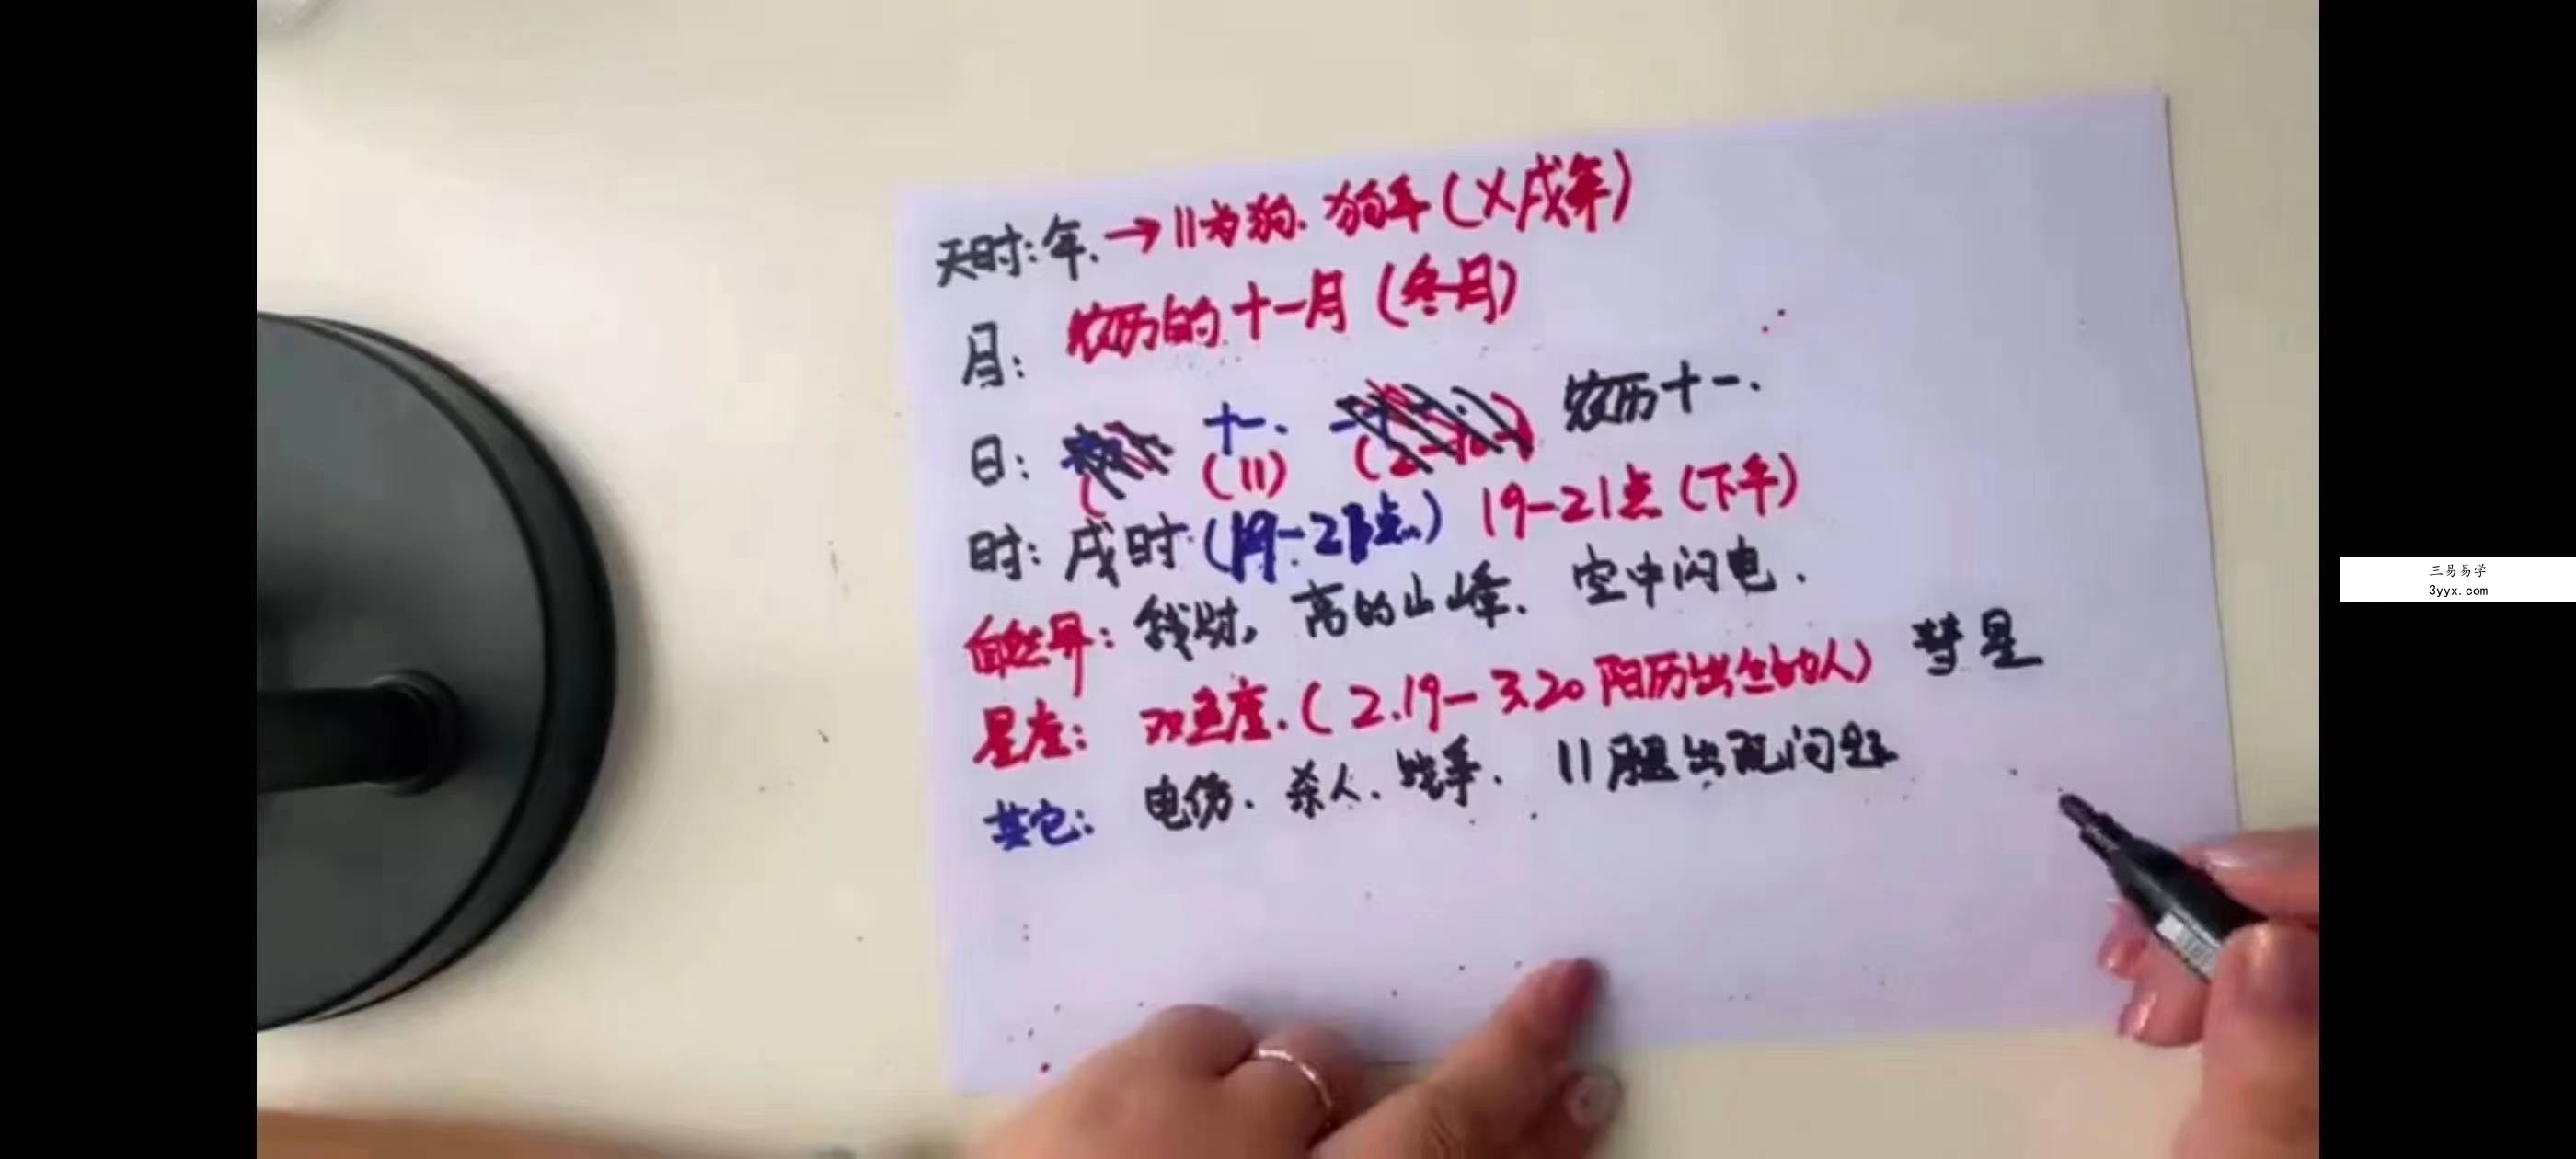 天时:年.→11为狗.狗年(X戌年)
月: 农历的十一月(冬月)
日: 十一. (11) 农历十一.
时:戌时(19-21点) 19-21点(下午)
自然界: 钱财, 高的山峰. 空中闪电.
星座: 双鱼座.(2.19-3.20阳历出生的人) 彗星
其它: 电伤. 杀人. 战争. 11腿出现问题
三易易学
3yyx.com